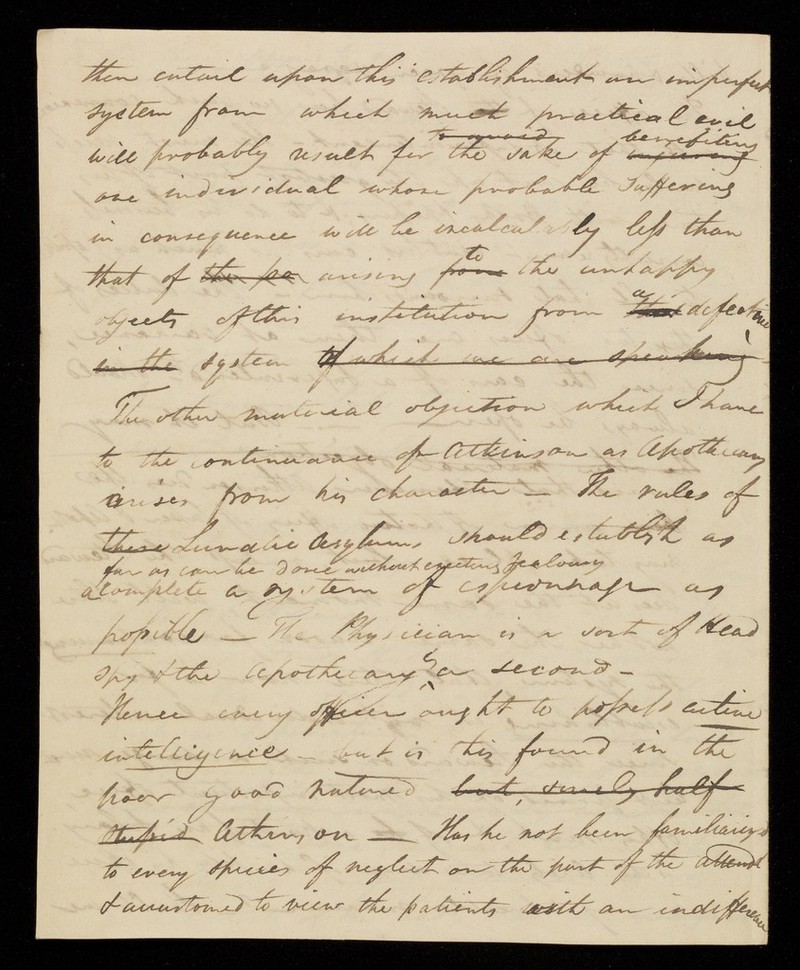 then entail upon this establishment an imperfect
system from which much practical evil
will probably result for to avoid the sake of benefiting injuring
one individual whose probable suffering
in consequence will be incalculably less than
that of the po arising from to the unhappy
objects of this institution from this a defective
in the system of which we are speaking
The other material objection which I have
to the continuance of Atkinson as Apothecary
arises from his character — The rules of
these Lunatic Asylums should establish as
far as can be done without exciting jealousy
a complete a system of espionnage as
possible — The Physician is a sort of Head
spy & the Apothecary a second —
Hence every officer ought to possess active
intelligence — but is this found in the
poor good natured but, surely half
stupid Atkinson — Has he not been familiarized
to every species of neglect on the part of the
& accustomed to view the patients with an indifference